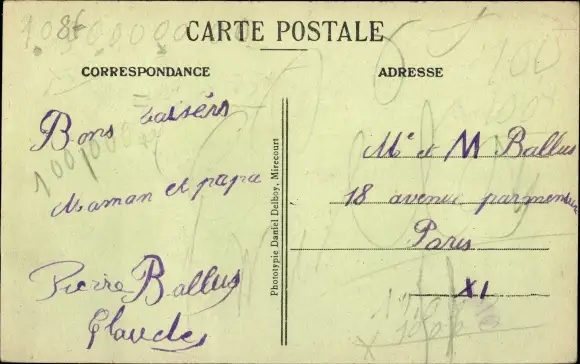 CARTE POSTALE
CORRESPONDANCE
ADRESSE
Bons baisérs
Maman et papa
Pierre Ballus
Glaude
Phototypie Daniel Delboy, Mirecourt
Me et M Ballus
18 avenue parmentier
Paris
XI